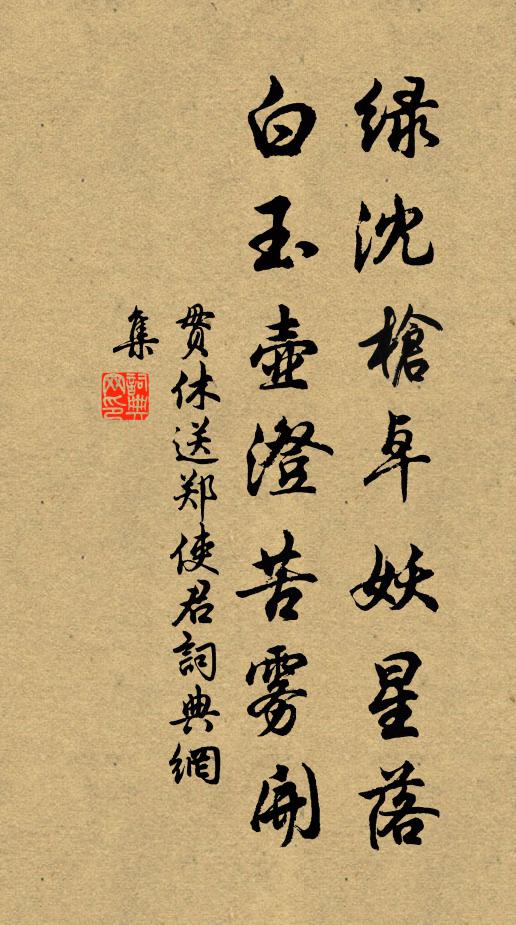 绿沈槍卓妖星落
白玉壺澄苦雾開
贯休送郑使君詞典網
集
詞典
网印